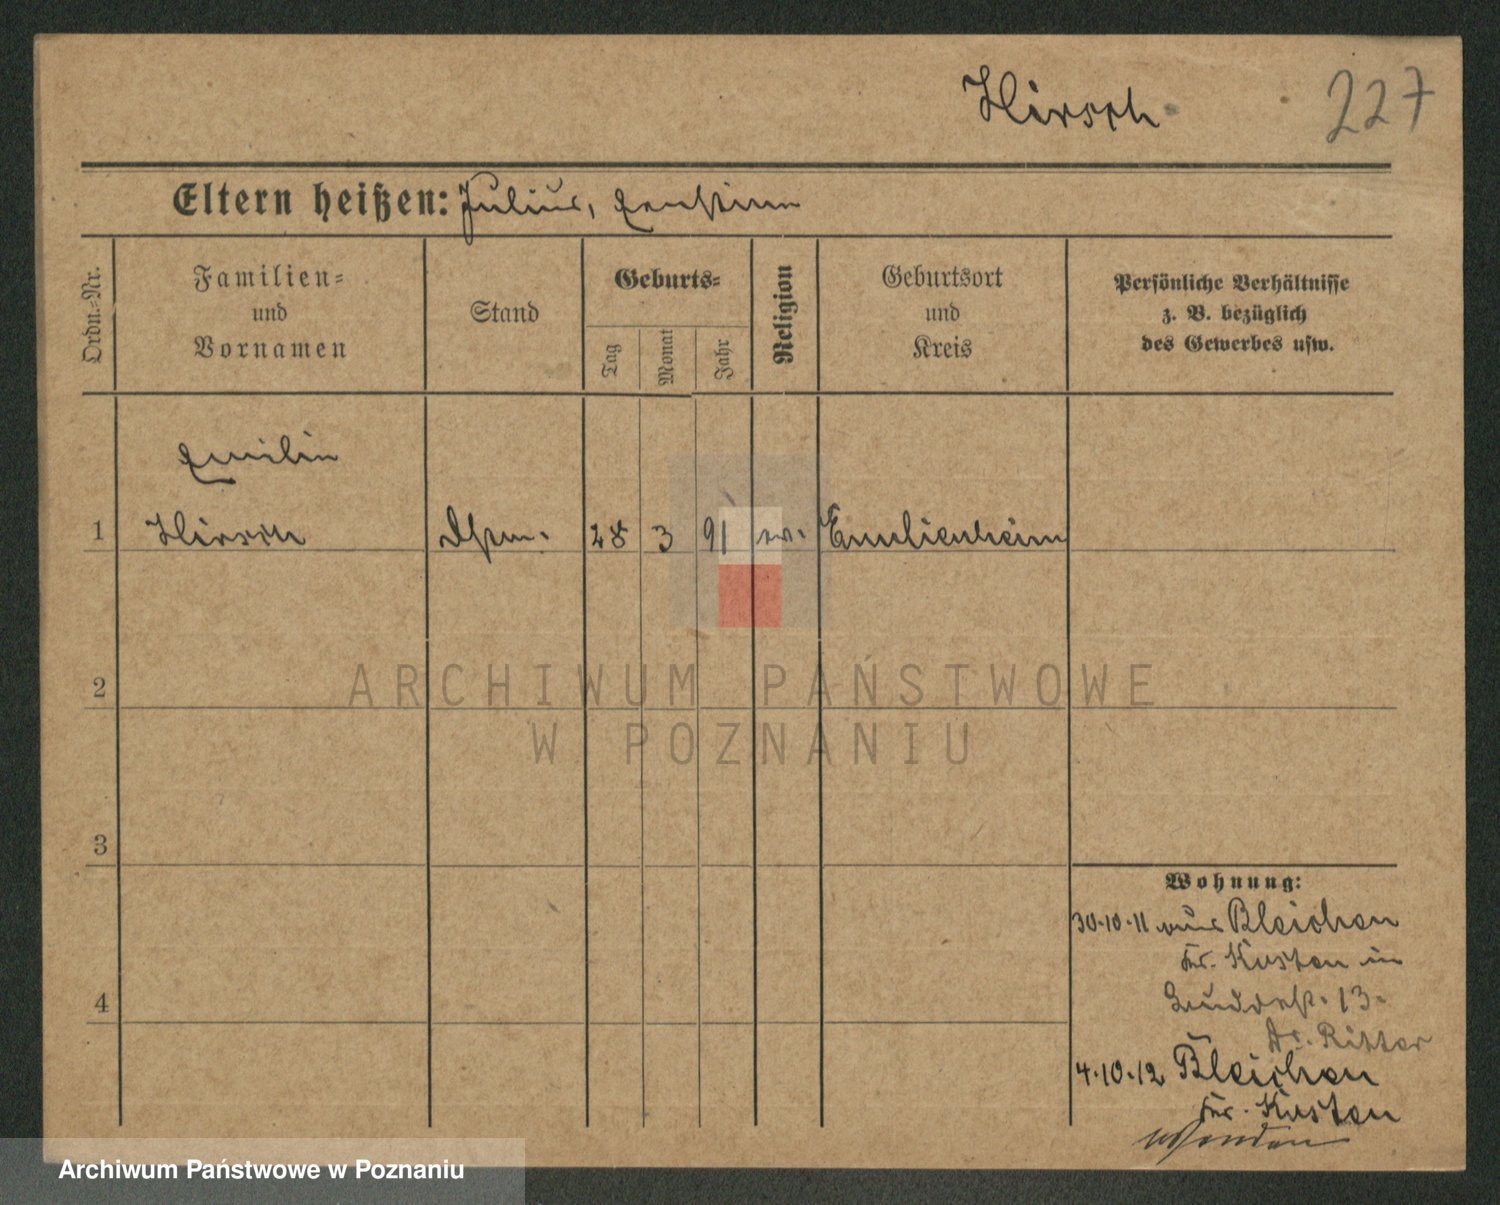 Hirsch
227
Eltern heißen: Julius, Ernstine
Ordn.-Nr.
Familien-
und
Vornamen
Stand
Geburts-
Tag
Monat
Jahr
Religion
Geburtsort
und
Kreis
Persönliche Verhältnisse
z. B. bezüglich
des Gewerbes usw.
Emilie
1 Hirsch
28 3 91 ev. Emilienheim
2
3
4
Wohnung:
30.10.11 aus Bleichen
Kr. Kosten in
13.
Dr. Ritter
4.10.12 Bleichen
Kr. Kosten
ARCHIWUM PAŃSTWOWE
W POZNANIU
Archiwum Państwowe w Poznaniu